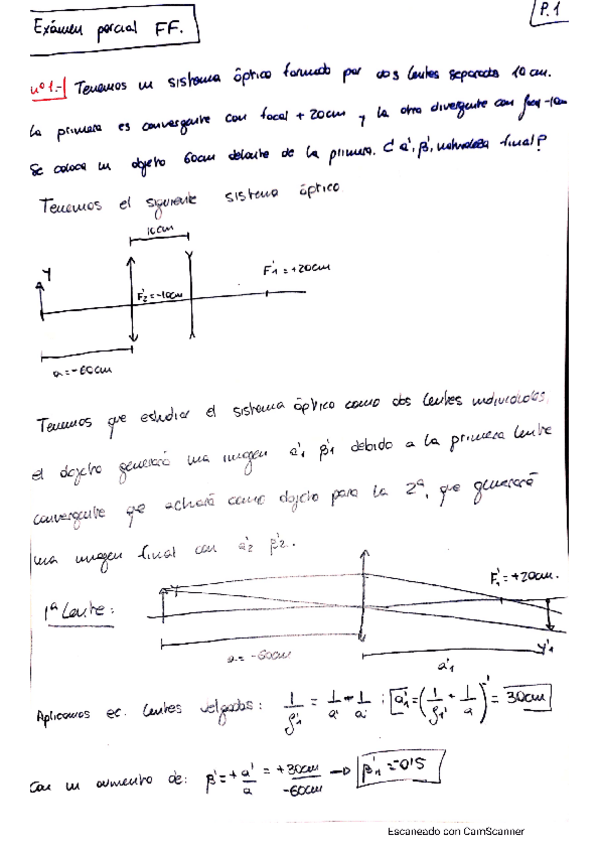 P.1
Exámen parcial FF.
nº1.- Tenemos un sistema óptico formado por dos lentes separadas 10cm.
La primera es convergente con focal +20cm y la otra divergente con focal -10cm
Se coloca un objeto 60cm delante de la primera. ¿ a', β', naturaleza final?
Tenemos el siguiente sistema óptico
10cm
Y
F'1 = +20cm
F'2 = -10cm
a = -60cm
Tenemos que estudiar el sistema óptico como dos lentes individuales,
el objeto generará una imagen a'1 β'1 debido a la primera lente
convergente que actuará como objeto para la 2ª, que generará
una imagen final con a'2 β'2.
1ª Lente:
Y
F'1 = +20cm.
a = -60cm
a'1
Y'1
Aplicamos ec. lentes delgadas: 1/f'1 = 1/a' - 1/a ; a'1 = (1/f'1 + 1/a)^-1 = 30cm
Con un aumento de: β' = + a'/a = +30cm/-60cm → β'1 = -0'5
Escaneado con CamScanner